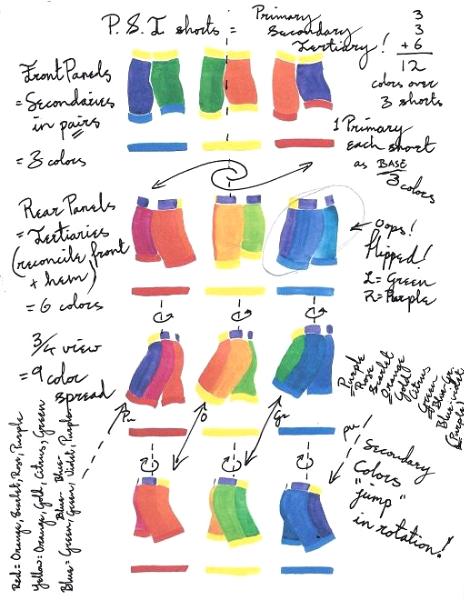 P. S. T shorts = Primary
Secondary
Tertiary!
3
3
+ 6
12
colors over
3 shorts
Front Panels
= Secondaries
in pairs
= 3 colors
1 Primary
each short
as BASE
3 colors
Rear Panels
= Tertiaries
(reconcile front
+ hem)
= 6 colors
Oops!
flipped!
L = Green
R = Purple
3/4 view
= 9 color
spread
Purple
Rose
Scarlet
Orange
Gold
Citrus
Green
Blue-Gr.
Blue-violet
(Purple)
Pu
O
Gr
pu
Secondary
Colors
"jump"
in rotation!
Red = Orange, Scarlet, Rose, Purple
Yellow = Orange, Gold, Citrus, Green
Blue = Green, Blue-Green, Blue-Violet, Purple